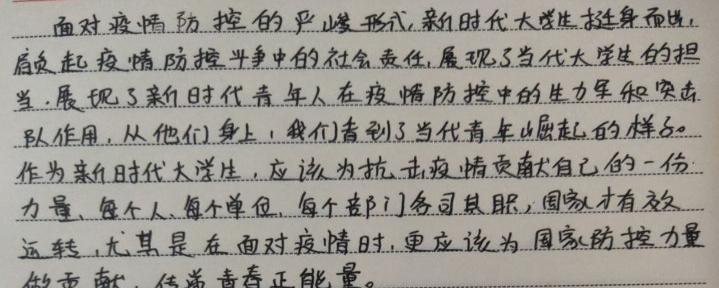 面对疫情防控的严峻形式,新时代大学生挺身而出,
肩负起疫情防控斗争中的社会责任,展现了当代大学生的担
当.展现了新时代青年人在疫情防控中的生力军和突击
队作用,从他们身上,我们看到了当代青年崛起的样子。
作为新时代大学生,应该为抗击疫情贡献自己的一份
力量、每个人、每个单位、每个部门各司其职,国家才有效
运转,尤其是在面对疫情时,更应该为国家防控力量
做贡献,传递青春正能量。